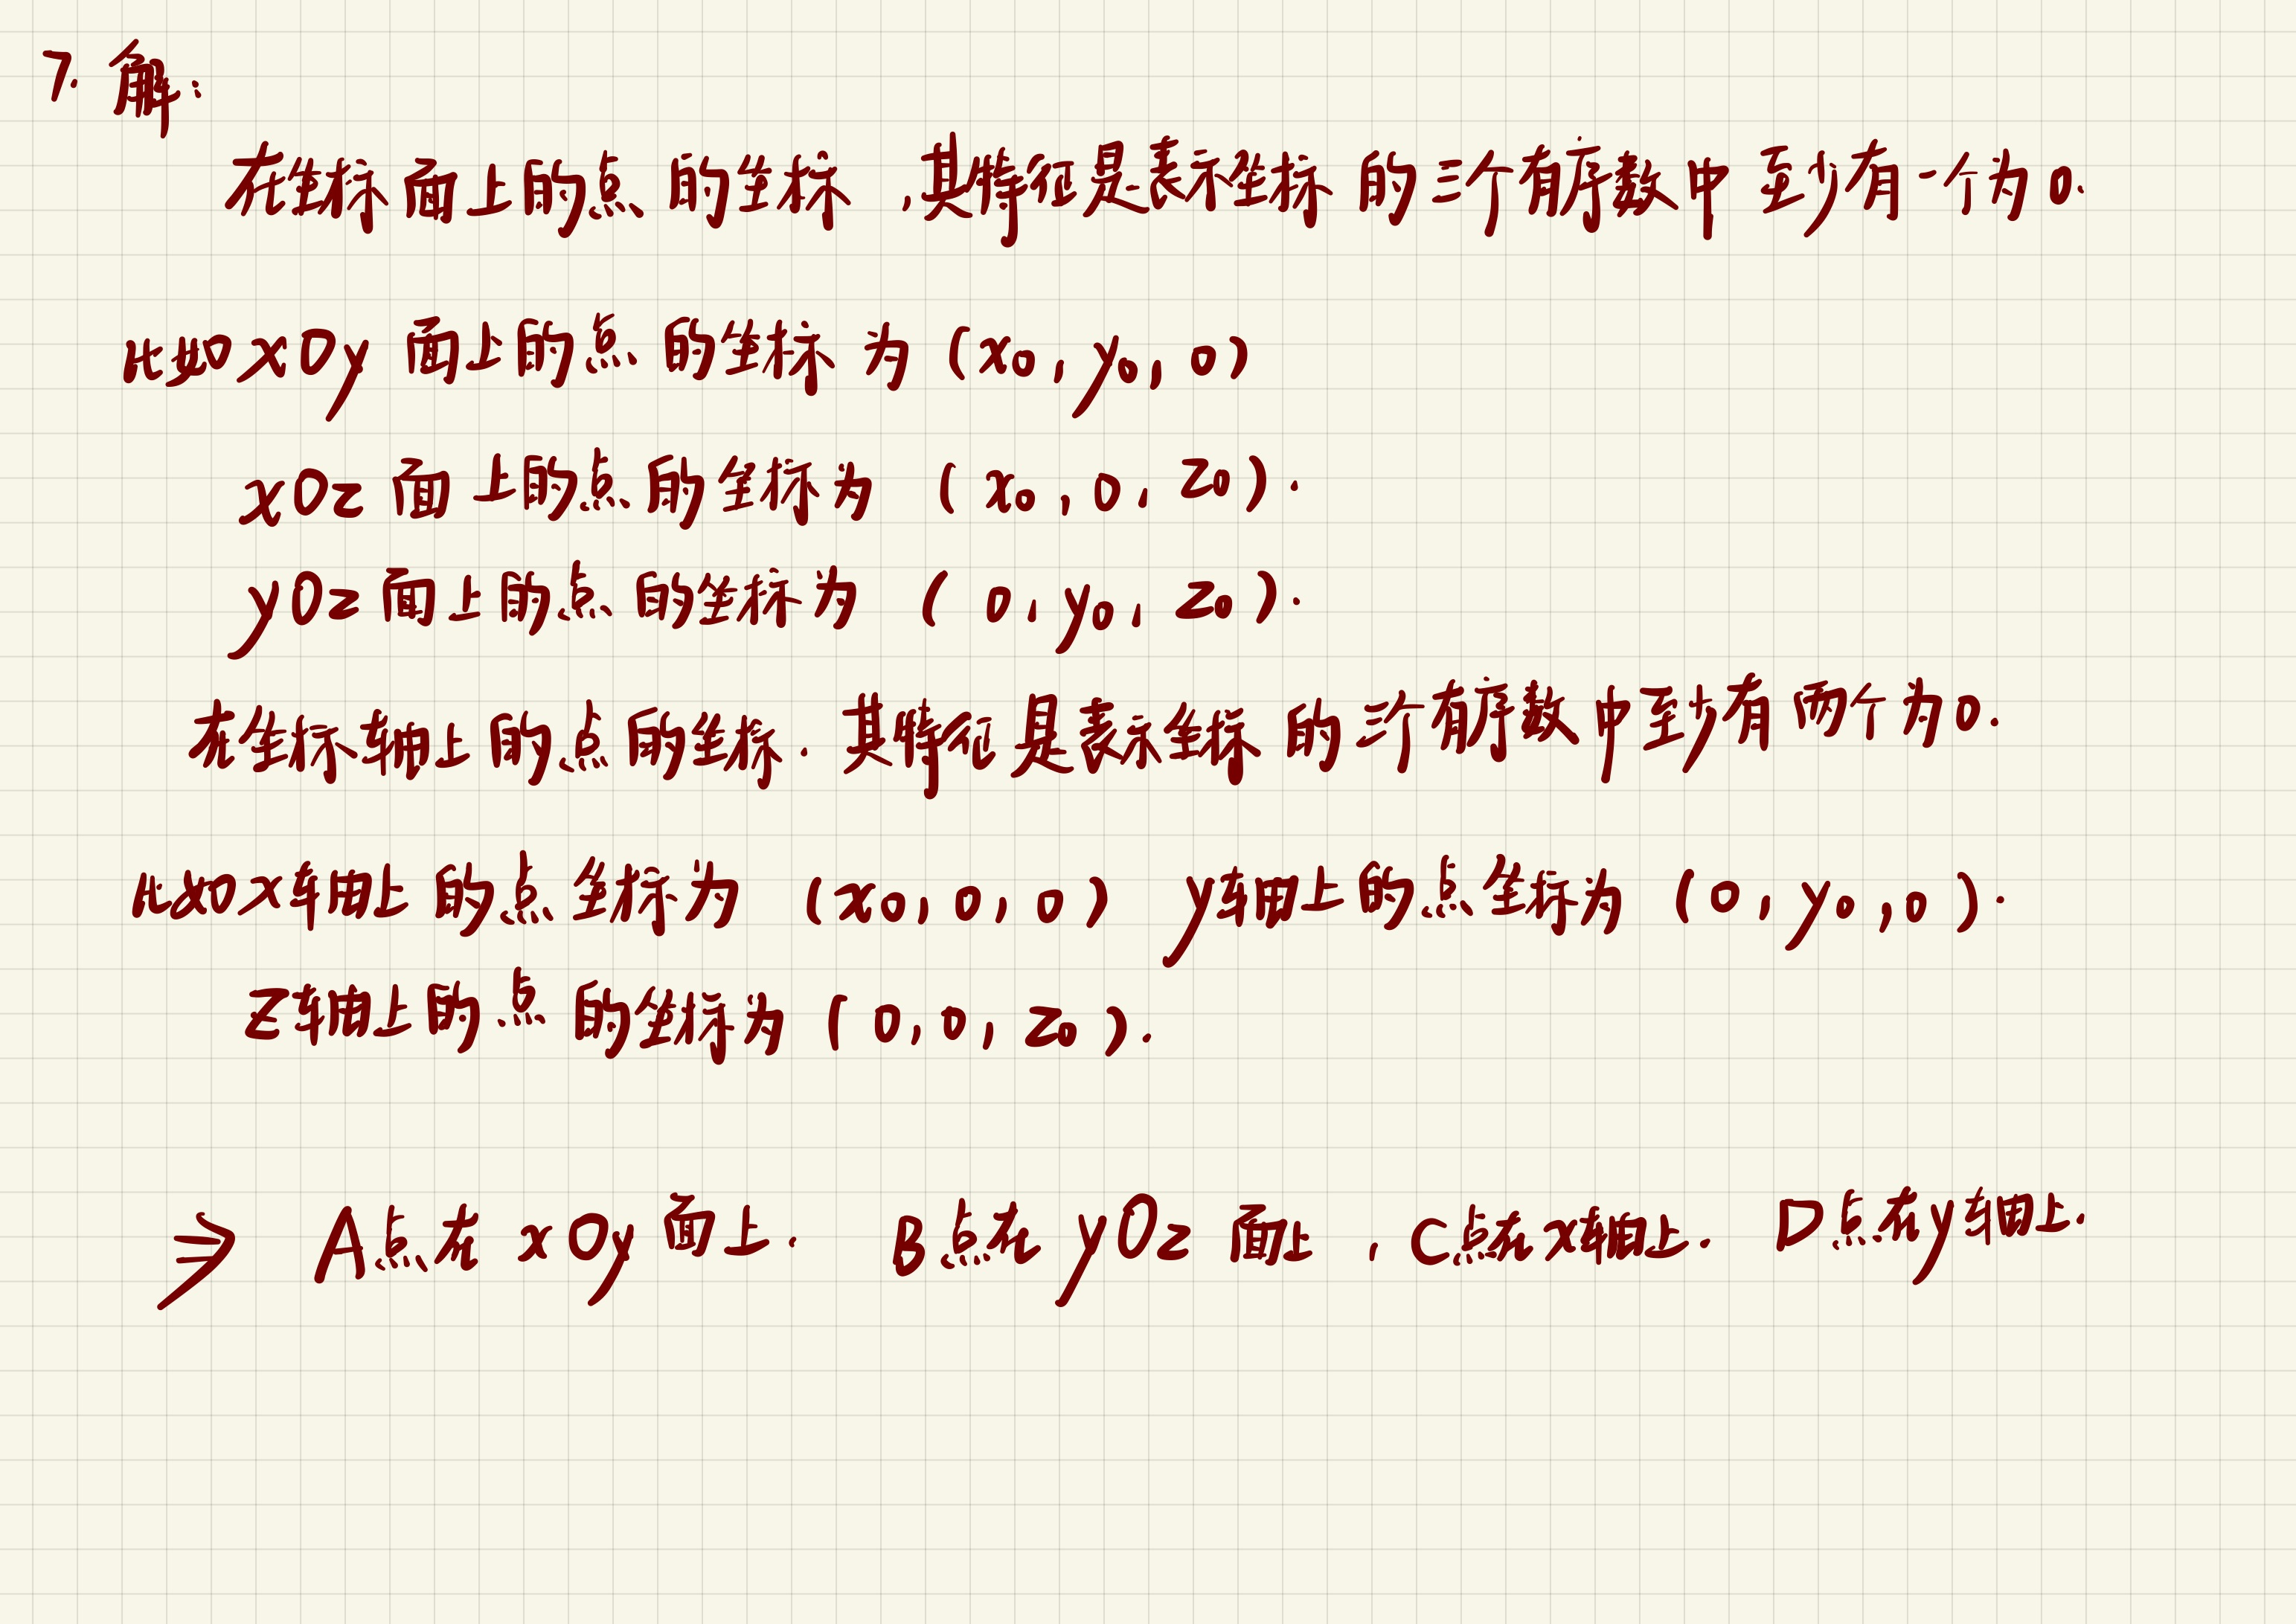 7. 解:
在坐标面上的点的坐标,其特征是表示坐标的三个有序数中至少有一个为0.
比如xOy面上的点的坐标为(x0,y0,0)
xOz面上的点的坐标为(x0,0,z0).
yOz面上的点的坐标为(0,y0,z0).
在坐标轴上的点的坐标.其特征是表示坐标的三个有序数中至少有两个为0.
比如x轴上的点坐标为(x0,0,0) y轴上的点坐标为(0,y0,0).
z轴上的点的坐标为(0,0,z0).
⇒ A点在xOy面上. B点在yOz面上,C点在x轴上. D点在y轴上.